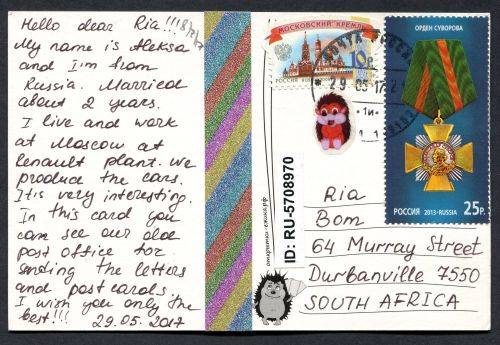 Hello dear Ria!!!
My name is Aleksa
and I'm from
Russia. Married
about 2 years.
I live and work
at Moscow at
Renault plant. We
produce the cars.
It is very interesting.
In this card you
can see our old
post office for
sending the letters
and post cards.
I wish you only the
best!!! 29.05.2017
открытки-ежика.рф
ID: RU-5708970
МОСКОВСКИЙ КРЕМЛЬ
10р
РОССИЯ RUSSIA
ПОЧТА РОССИИ
29 05 17 21
ОРДЕН СУВОРОВА
РОССИЯ 2013·RUSSIA 25р.
Ria
Bom
64 Murray Street
Durbanville 7550
SOUTH AFRICA